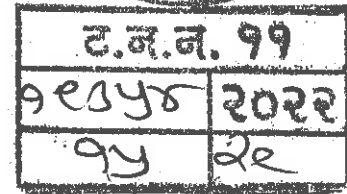 ट.न.न. ११
१९७५४ २०२२
१५ २९